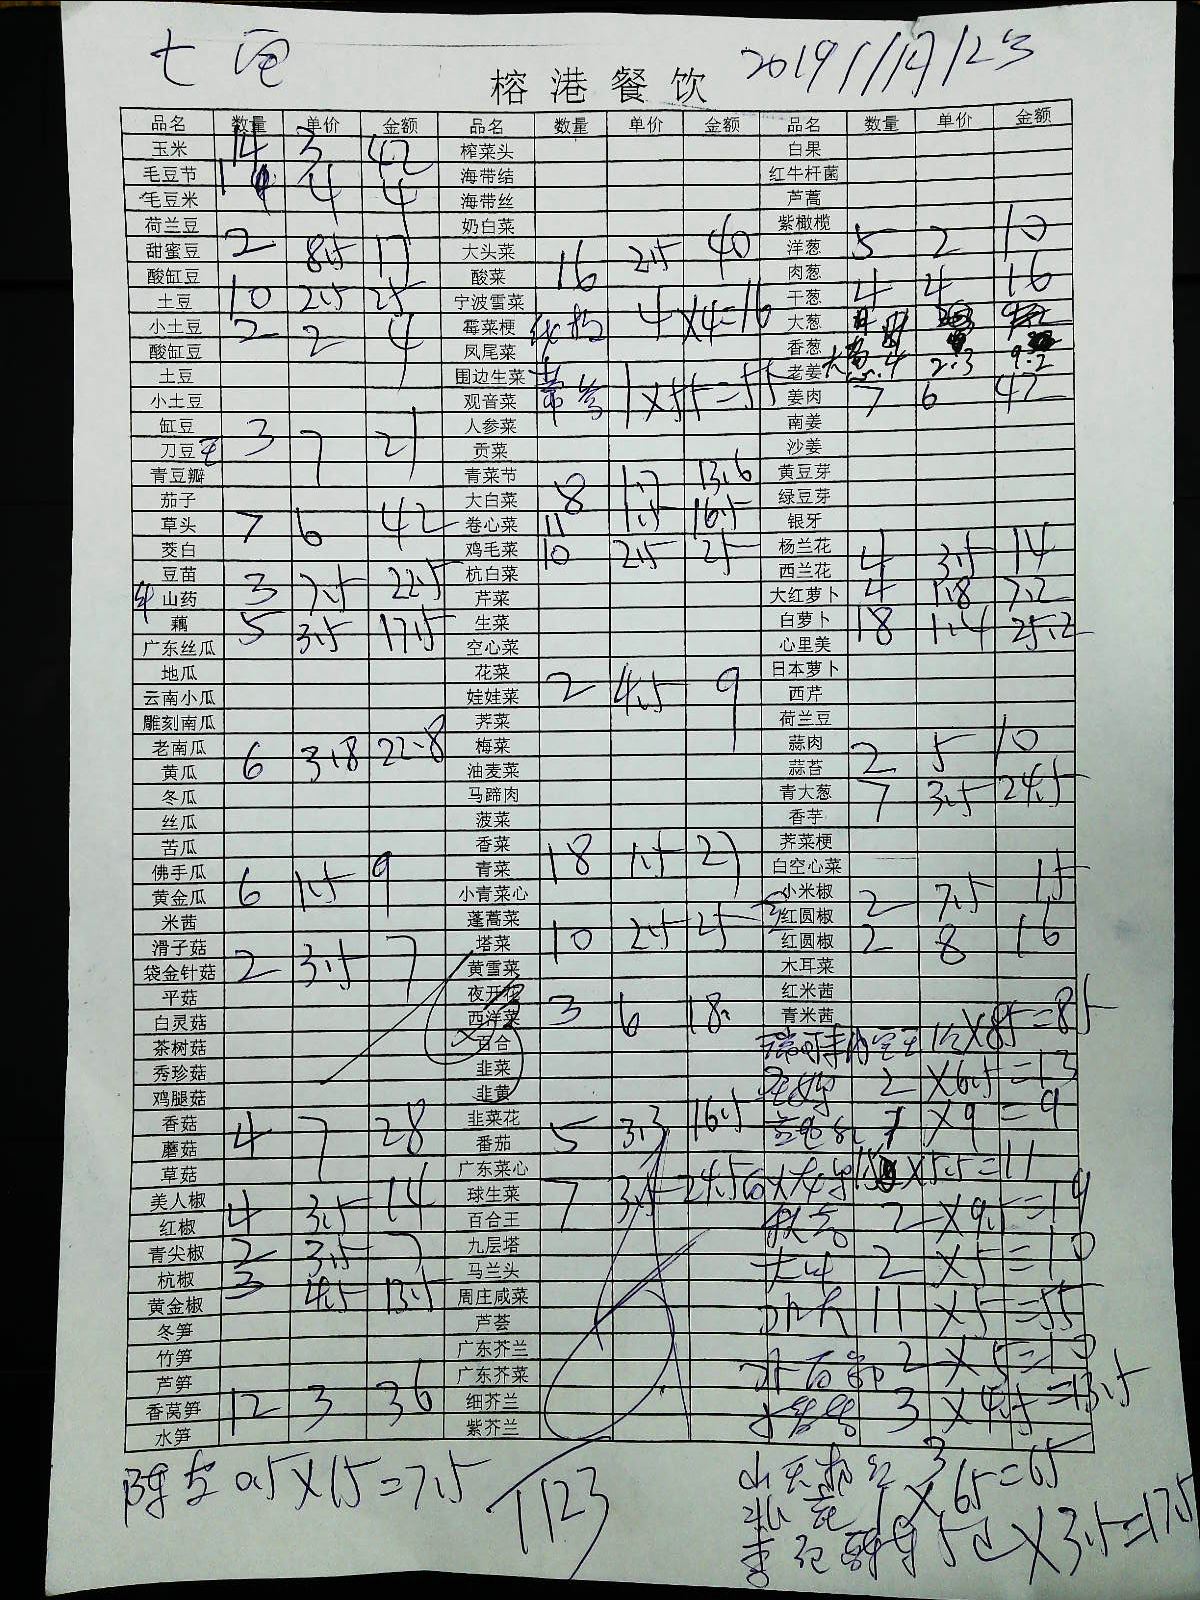 七 2019 1/14/123
榕港餐饮
品名 数量 单价 金额 品名 数量 单价 金额 品名 数量 单价 金额
玉米 14 3 42 榨菜头 白果
毛豆节 海带结 红牛杆菌
毛豆米 1 4 4 海带丝 芦蒿
荷兰豆 奶白菜 紫橄榄
甜蜜豆 2 8.5 17 大头菜 洋葱 5 2 10
酸缸豆 酸菜 16 2.5 40 肉葱
土豆 10 2.5 25 宁波雪菜 干葱 4 4 16
小土豆 2 2 4 霉菜梗 4×4=16 大葱
酸缸豆 凤尾菜 香葱
土豆 围边生菜 老姜 4 2.3 9.2
小土豆 观音菜 1×55=55 姜肉 7 6 42
缸豆 3 7 21 人参菜 南姜
刀豆 贡菜 沙姜
青豆瓣 青菜节 黄豆芽
茄子 大白菜 8 1.7 13.6 绿豆芽
草头 7 6 42 卷心菜 11 1.5 16.5 银牙
茭白 鸡毛菜 10 2.5 25 杨兰花
豆苗 杭白菜 西兰花 4 3.5 14
山药 3 7.5 22.5 芹菜 大红萝卜 4 1.8 7.2
藕 5 3.5 17.5 生菜 白萝卜 18 1.4 25.2
广东丝瓜 空心菜 心里美
地瓜 花菜 日本萝卜
云南小瓜 娃娃菜 2 4.5 9 西芹
雕刻南瓜 荠菜 荷兰豆
老南瓜 梅菜 蒜肉 2 5 10
黄瓜 6 3.8 22.8 油麦菜 蒜苔
冬瓜 马蹄肉 青大葱 7 3.5 24.5
丝瓜 菠菜 香芋
苦瓜 香菜 荠菜梗
佛手瓜 青菜 18 1.5 27 白空心菜
黄金瓜 6 1.5 9 小青菜心 小米椒 2 7.5 15
米茜 蓬蒿菜 红圆椒
滑子菇 塔菜 10 2.5 25 红圆椒 2 8 16
袋金针菇 2 3.5 7 黄雪菜 木耳菜
平菇 夜开花 红米茜
白灵菇 西洋菜 3 6 18 青米茜
茶树菇 百合 1×85=85
秀珍菇 韭菜 2×6.5=13
鸡腿菇 韭黄 1×9=9
香菇 4 7 28 韭菜花
蘑菇 番茄 5 3.3 16.5
草菇 广东菜心 ×5.5=11
美人椒 球生菜 7 3.5 24.5
红椒 4 3.5 14 百合王 2×9.5=19
青尖椒 2 3.5 7 九层塔 2×5=10
杭椒 3 4.5 13.5 马兰头
黄金椒 周庄咸菜 11×5=55
冬笋 芦荟
竹笋 广东芥兰 2×5=10
芦笋 广东芥菜
香莴笋 12 3 36 细芥兰 3×4.5=13.5
水笋 紫芥兰
0.5×15=7.5 1123
1×65=65
5 ×3.5=17.5